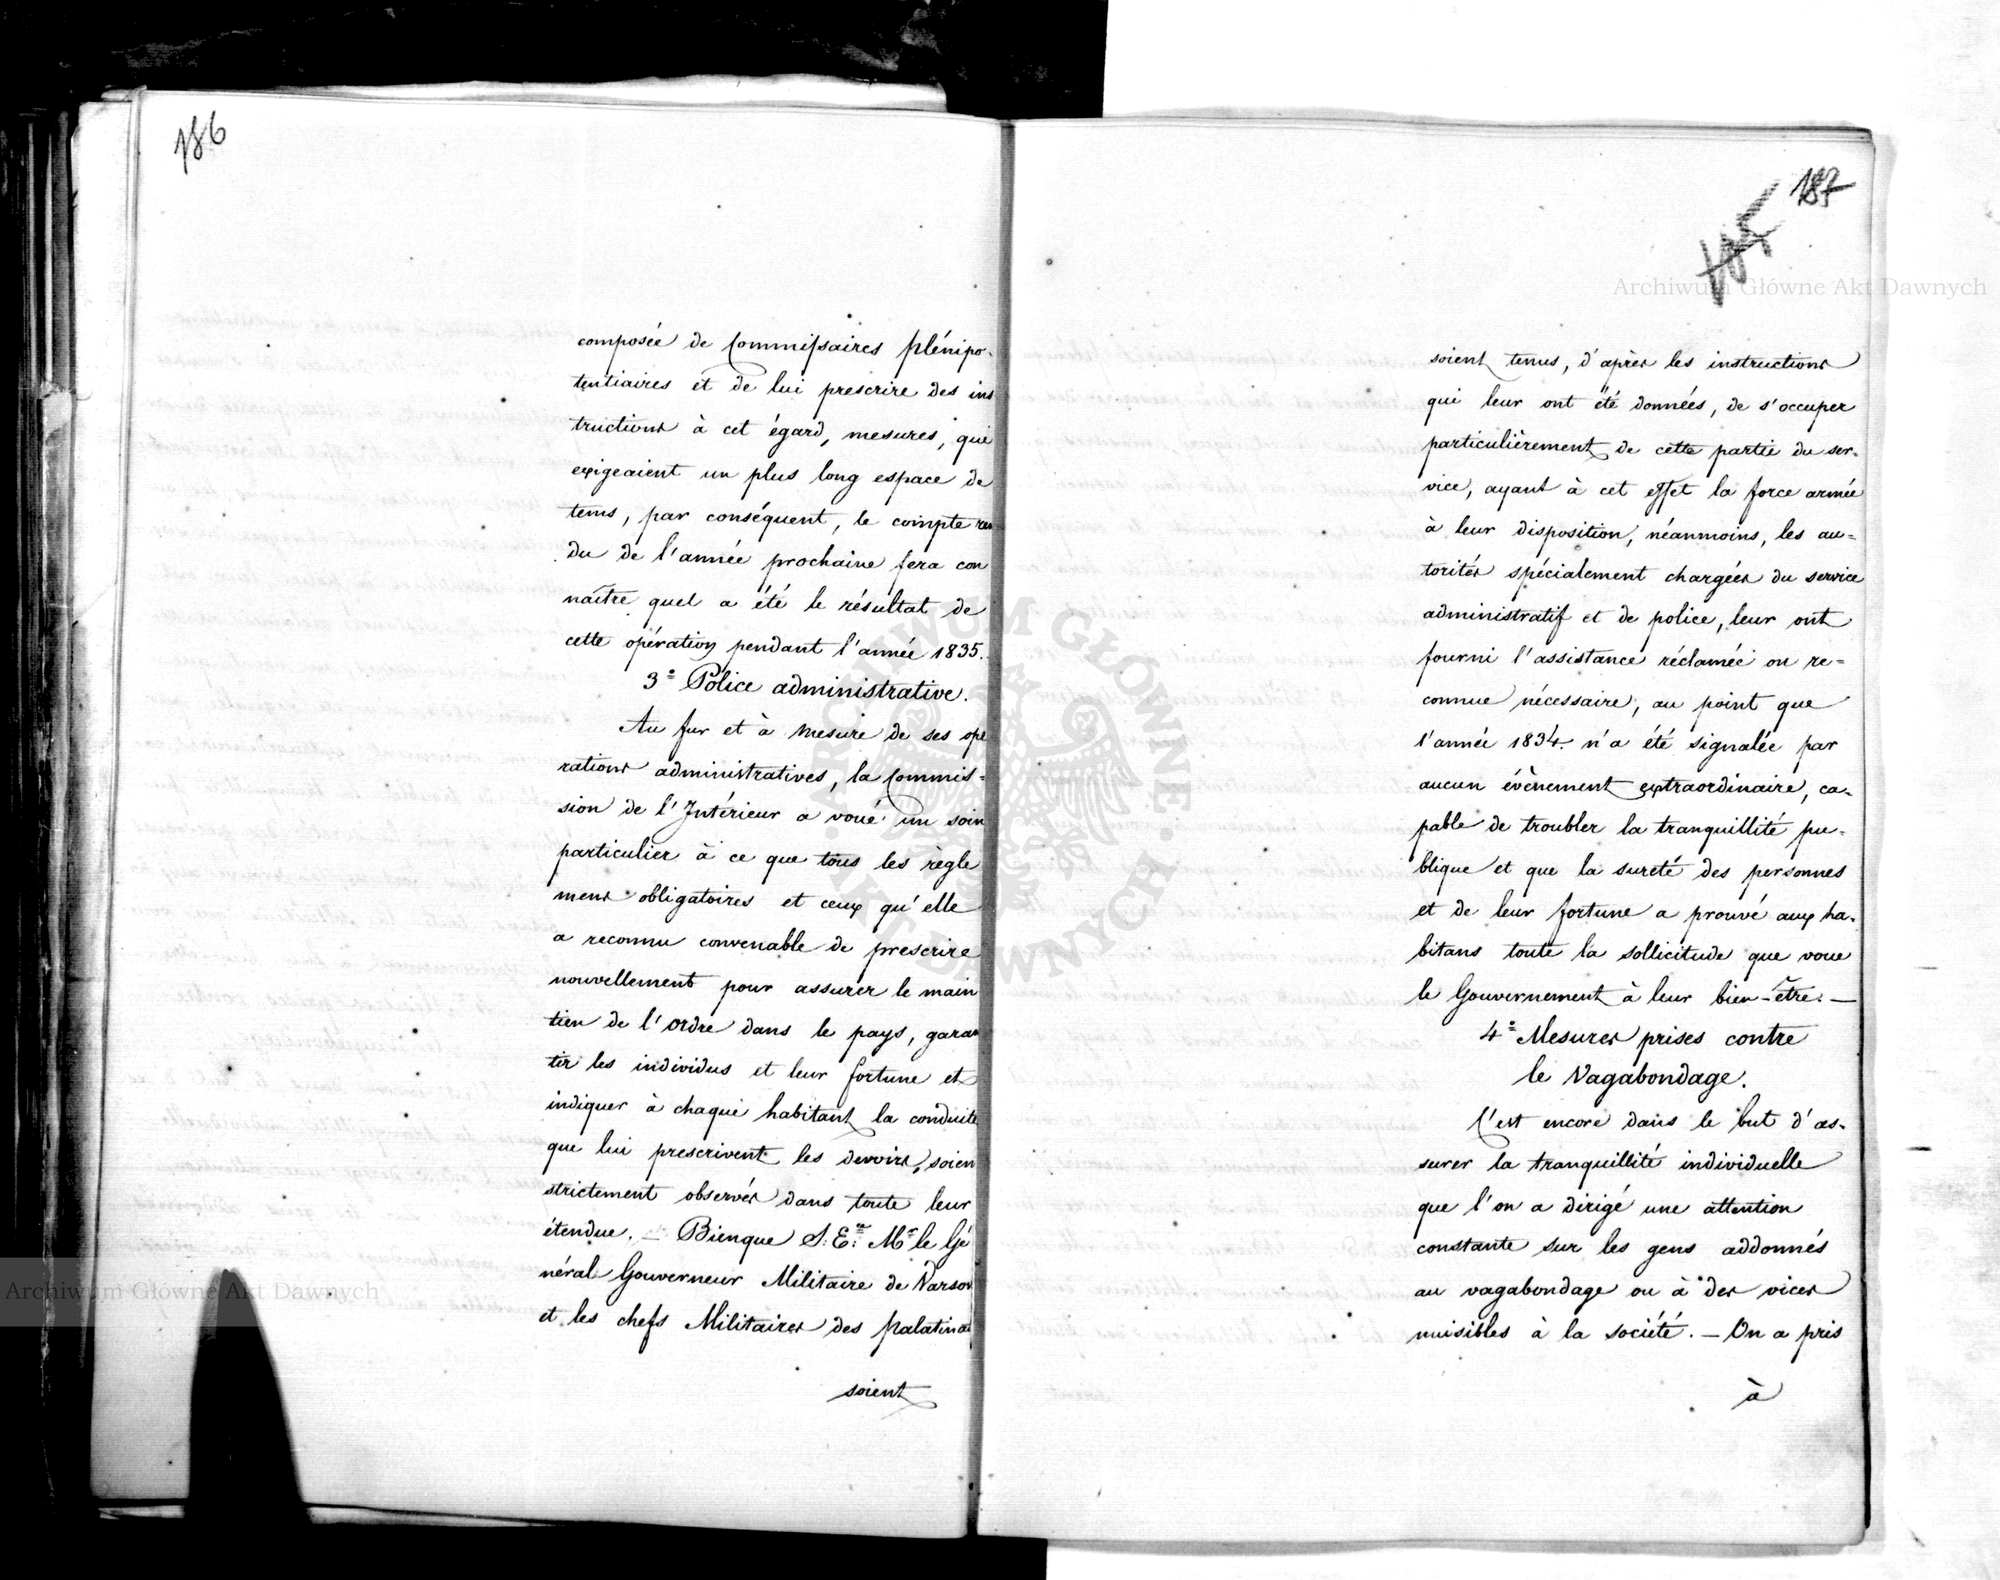 186
composée de Commissaires Plénipo-
tentiaires et de lui prescrire des ins
tructions à cet égard, mesures, qui
exigeaient un plus long espace de
tems, par conséquent, le compte ren
du de l'année prochaine fera con
naître quel a été le résultat de
cette opération pendant l'année 1835.
3° Police administrative.
Au fur et à mesure de ses opé
rations administratives, la Commis-
sion de l'Intérieur a voué un soin
particulier à ce que tous les règle
mens obligatoires et ceux qu'elle
a reconnu convenable de prescrire
nouvellement pour assurer le main
tien de l'ordre dans le pays, garan
tir les individus et leur fortune et
indiquer à chaque habitant la conduite
que lui prescrivent les devoirs, soien
strictement observés dans toute leur
étendue. — Bienque S. E. Mr le Gé
néral Gouverneur Militaire de Varsov
et les chefs Militaires des Palatinas
soient
187
185
soient tenus, d'après les instructions
qui leur ont été données, de s'occuper
particulièrement de cette partie du ser-
vice, ayant à cet effet la force armée
à leur disposition, néanmoins, les au-
torités spécialement chargées du service
administratif et de police, leur ont
fourni l'assistance réclamée ou re-
connue nécessaire, au point que
l'année 1834. n'a été signalée par
aucun évènement extraordinaire, ca-
pable de troubler la tranquillité pu-
blique et que la sureté des personnes
et de leur fortune a prouvé aux ha-
bitans toute la sollicitude que voue
le Gouvernement à leur bien-être. —
4° Mesures prises contre
le Vagabondage.
C'est encore dans le but d'as-
surer la tranquillité individuelle
que l'on a dirigé une attention
constante sur les gens addonnés
au vagabondage ou à des vices
nuisibles à la société. — On a pris
à
Archiwum Główne Akt Dawnych
Archiwum Główne Akt Dawnych
ARCHIWUM GŁÓWNE AKT DAWNYCH